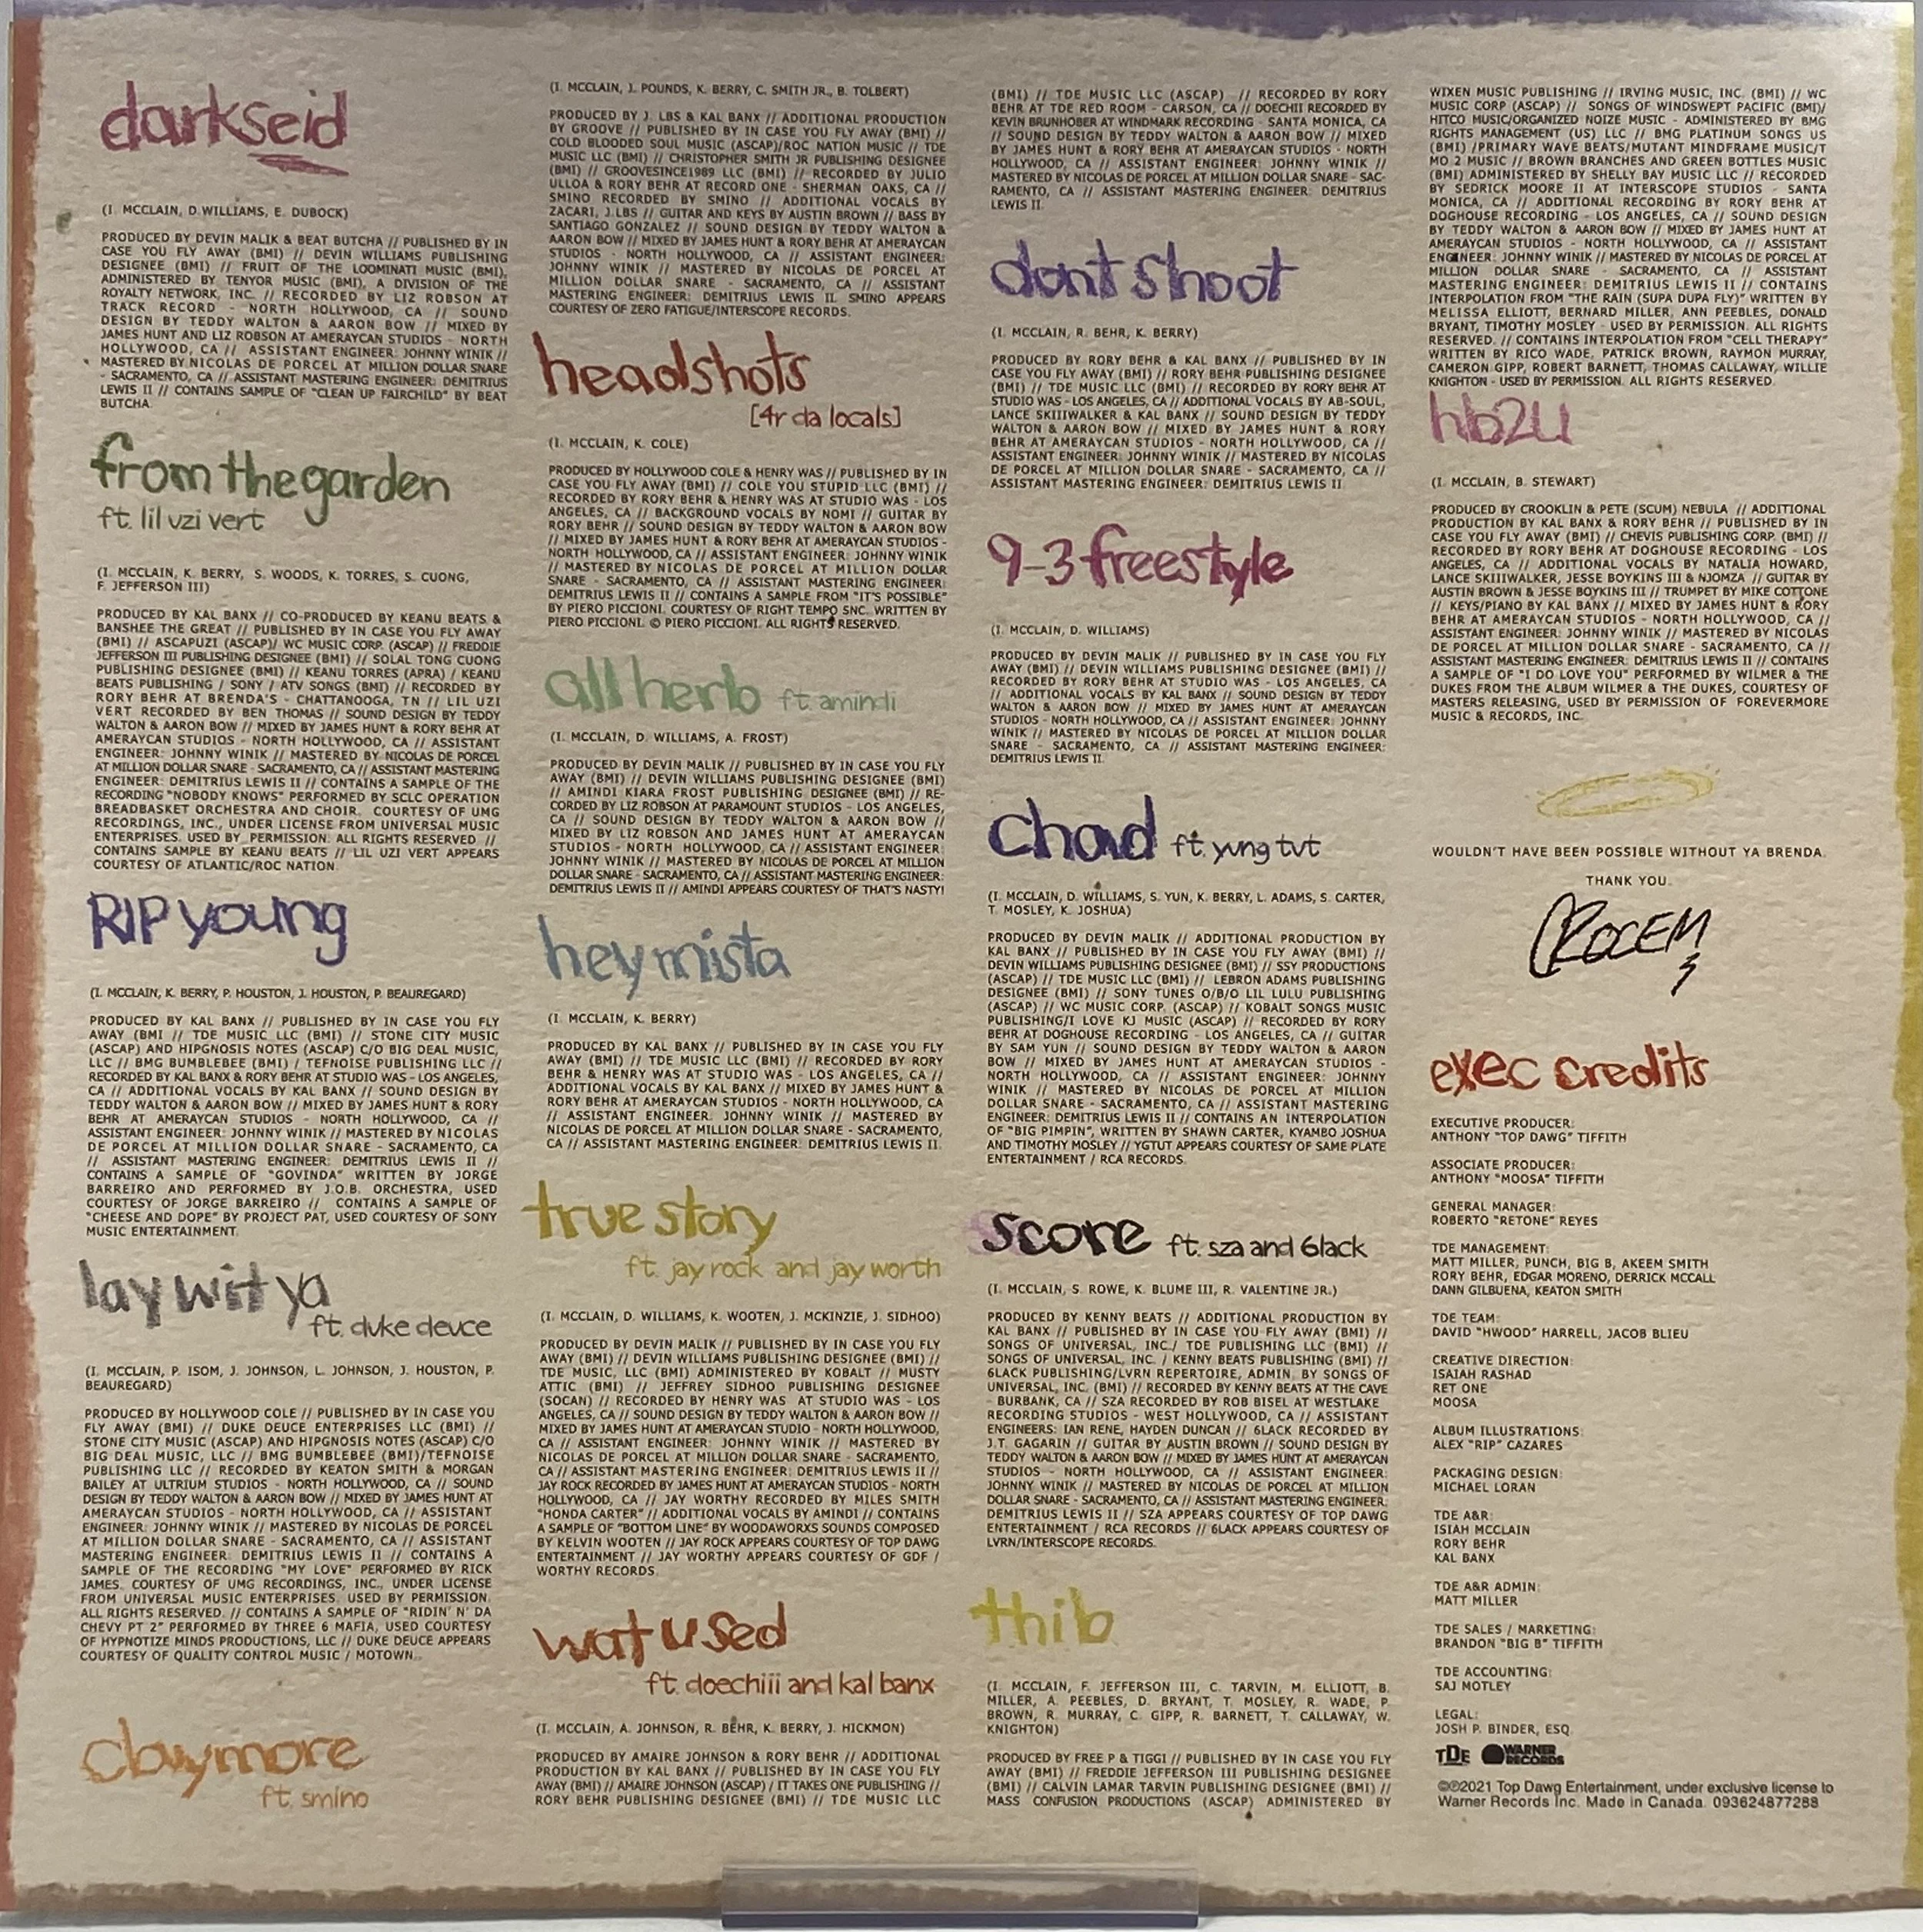 darkseid
(I. MCCLAIN, D.WILLIAMS, E. DUBOCK)
PRODUCED BY DEVIN MALIK & BEAT BUTCHA // PUBLISHED BY IN
CASE YOU FLY AWAY (BMI) // DEVIN WILLIAMS PUBLISHING
DESIGNEE (BMI) // FRUIT OF THE LOOMINATI MUSIC (BMI),
ADMINISTERED BY TENYOR MUSIC (BMI), A DIVISION OF THE
ROYALTY NETWORK, INC. // RECORDED BY LIZ ROBSON AT
TRACK RECORD - NORTH HOLLYWOOD, CA // SOUND
DESIGN BY TEDDY WALTON & AARON BOW // MIXED BY
JAMES HUNT AND LIZ ROBSON AT AMERAYCAN STUDIOS - NORTH
HOLLYWOOD, CA // ASSISTANT ENGINEER: JOHNNY WINIK //
MASTERED BY NICOLAS DE PORCEL AT MILLION DOLLAR SNARE
- SACRAMENTO, CA // ASSISTANT MASTERING ENGINEER: DEMITRIUS
LEWIS II // CONTAINS SAMPLE OF "CLEAN UP FAIRCHILD" BY BEAT
BUTCHA.
from the garden
ft. lil uzi vert
(I. MCCLAIN, K. BERRY, S. WOODS, K. TORRES, S. CUONG,
F. JEFFERSON III)
PRODUCED BY KAL BANX // CO-PRODUCED BY KEANU BEATS &
BANSHEE THE GREAT // PUBLISHED BY IN CASE YOU FLY AWAY
(BMI) // ASCAPUZI (ASCAP)/ WC MUSIC CORP. (ASCAP) // FREDDIE
JEFFERSON III PUBLISHING DESIGNEE (BMI) // SOLAL TONG CUONG
PUBLISHING DESIGNEE (BMI) // KEANU TORRES (APRA) / KEANU
BEATS PUBLISHING / SONY / ATV SONGS (BMI) // RECORDED BY
RORY BEHR AT BRENDA'S - CHATTANOOGA, TN // LIL UZI
VERT RECORDED BY BEN THOMAS // SOUND DESIGN BY TEDDY
WALTON & AARON BOW // MIXED BY JAMES HUNT & RORY BEHR AT
AMERAYCAN STUDIOS - NORTH HOLLYWOOD, CA // ASSISTANT
ENGINEER: JOHNNY WINIK // MASTERED BY NICOLAS DE PORCEL
AT MILLION DOLLAR SNARE - SACRAMENTO, CA // ASSISTANT MASTERING
ENGINEER: DEMITRIUS LEWIS II // CONTAINS A SAMPLE OF THE
RECORDING "NOBODY KNOWS" PERFORMED BY SCLC OPERATION
BREADBASKET ORCHESTRA AND CHOIR. COURTESY OF UMG
RECORDINGS, INC., UNDER LICENSE FROM UNIVERSAL MUSIC
ENTERPRISES. USED BY PERMISSION. ALL RIGHTS RESERVED //
CONTAINS SAMPLE BY KEANU BEATS // LIL UZI VERT APPEARS
COURTESY OF ATLANTIC/ROC NATION.
RIP young
(I. MCCLAIN, K. BERRY, P. HOUSTON, J. HOUSTON, P. BEAUREGARD)
PRODUCED BY KAL BANX // PUBLISHED BY IN CASE YOU FLY
AWAY (BMI // TDE MUSIC LLC (BMI) // STONE CITY MUSIC
(ASCAP) AND HIPGNOSIS NOTES (ASCAP) C/O BIG DEAL MUSIC,
LLC // BMG BUMBLEBEE (BMI) / TEFNOISE PUBLISHING LLC //
RECORDED BY KAL BANX & RORY BEHR AT STUDIO WAS - LOS ANGELES,
CA // ADDITIONAL VOCALS BY KAL BANX // SOUND DESIGN BY
TEDDY WALTON & AARON BOW // MIXED BY JAMES HUNT & RORY
BEHR AT AMERAYCAN STUDIOS - NORTH HOLLYWOOD, CA //
ASSISTANT ENGINEER: JOHNNY WINIK // MASTERED BY NICOLAS
DE PORCEL AT MILLION DOLLAR SNARE - SACRAMENTO, CA
// ASSISTANT MASTERING ENGINEER: DEMITRIUS LEWIS II //
CONTAINS A SAMPLE OF "GOVINDA" WRITTEN BY JORGE
BARREIRO AND PERFORMED BY J.O.B. ORCHESTRA, USED
COURTESY OF JORGE BARREIRO // CONTAINS A SAMPLE OF
"CHEESE AND DOPE" BY PROJECT PAT, USED COURTESY OF SONY
MUSIC ENTERTAINMENT.
lay wit ya
ft. duke deuce
(I. MCCLAIN, P. ISOM, J. JOHNSON, L. JOHNSON, J. HOUSTON, P.
BEAUREGARD)
PRODUCED BY HOLLYWOOD COLE // PUBLISHED BY IN CASE YOU
FLY AWAY (BMI) // DUKE DEUCE ENTERPRISES LLC (BMI) //
STONE CITY MUSIC (ASCAP) AND HIPGNOSIS NOTES (ASCAP) C/O
BIG DEAL MUSIC, LLC // BMG BUMBLEBEE (BMI)/TEFNOISE
PUBLISHING LLC // RECORDED BY KEATON SMITH & MORGAN
BAILEY AT ULTRIUM STUDIOS - NORTH HOLLYWOOD, CA // SOUND
DESIGN BY TEDDY WALTON & AARON BOW // MIXED BY JAMES HUNT AT
AMERAYCAN STUDIOS - NORTH HOLLYWOOD, CA // ASSISTANT
ENGINEER: JOHNNY WINIK // MASTERED BY NICOLAS DE PORCEL
AT MILLION DOLLAR SNARE - SACRAMENTO, CA // ASSISTANT
MASTERING ENGINEER: DEMITRIUS LEWIS II // CONTAINS A
SAMPLE OF THE RECORDING "MY LOVE" PERFORMED BY RICK
JAMES. COURTESY OF UMG RECORDINGS, INC., UNDER LICENSE
FROM UNIVERSAL MUSIC ENTERPRISES. USED BY PERMISSION.
ALL RIGHTS RESERVED. // CONTAINS A SAMPLE OF "RIDIN' N' DA
CHEVY PT 2" PERFORMED BY THREE 6 MAFIA, USED COURTESY
OF HYPNOTIZE MINDS PRODUCTIONS, LLC // DUKE DEUCE APPEARS
COURTESY OF QUALITY CONTROL MUSIC / MOTOWN.
claymore
ft. smino
(I. MCCLAIN, J. POUNDS, K. BERRY, C. SMITH JR., B. TOLBERT)
PRODUCED BY J. LBS & KAL BANX // ADDITIONAL PRODUCTION
BY GROOVE // PUBLISHED BY IN CASE YOU FLY AWAY (BMI) //
COLD BLOODED SOUL MUSIC (ASCAP)/ROC NATION MUSIC // TDE
MUSIC LLC (BMI) // CHRISTOPHER SMITH JR PUBLISHING DESIGNEE
(BMI) // GROOVESINCE1989 LLC (BMI) // RECORDED BY JULIO
ULLOA & RORY BEHR AT RECORD ONE - SHERMAN OAKS, CA //
SMINO RECORDED BY SMINO // ADDITIONAL VOCALS BY
ZACARI, J.LBS // GUITAR AND KEYS BY AUSTIN BROWN // BASS BY
SANTIAGO GONZALEZ // SOUND DESIGN BY TEDDY WALTON &
AARON BOW // MIXED BY JAMES HUNT & RORY BEHR AT AMERAYCAN
STUDIOS - NORTH HOLLYWOOD, CA // ASSISTANT ENGINEER:
JOHNNY WINIK // MASTERED BY NICOLAS DE PORCEL AT
MILLION DOLLAR SNARE - SACRAMENTO, CA // ASSISTANT
MASTERING ENGINEER: DEMITRIUS LEWIS II. SMINO APPEARS
COURTESY OF ZERO FATIGUE/INTERSCOPE RECORDS.
headshots
[4r da locals]
(I. MCCLAIN, K. COLE)
PRODUCED BY HOLLYWOOD COLE & HENRY WAS // PUBLISHED BY IN
CASE YOU FLY AWAY (BMI) // COLE YOU STUPID LLC (BMI) //
RECORDED BY RORY BEHR & HENRY WAS AT STUDIO WAS - LOS
ANGELES, CA // BACKGROUND VOCALS BY NOMI // GUITAR BY
RORY BEHR // SOUND DESIGN BY TEDDY WALTON & AARON BOW
// MIXED BY JAMES HUNT & RORY BEHR AT AMERAYCAN STUDIOS -
NORTH HOLLYWOOD, CA // ASSISTANT ENGINEER: JOHNNY WINIK
// MASTERED BY NICOLAS DE PORCEL AT MILLION DOLLAR
SNARE - SACRAMENTO, CA // ASSISTANT MASTERING ENGINEER:
DEMITRIUS LEWIS II // CONTAINS A SAMPLE FROM "IT'S POSSIBLE"
BY PIERO PICCIONI. COURTESY OF RIGHT TEMPO SNC. WRITTEN BY
PIERO PICCIONI. © PIERO PICCIONI. ALL RIGHTS RESERVED.
all herb ft. amindi
(I. MCCLAIN, D. WILLIAMS, A. FROST)
PRODUCED BY DEVIN MALIK // PUBLISHED BY IN CASE YOU FLY
AWAY (BMI) // DEVIN WILLIAMS PUBLISHING DESIGNEE (BMI)
// AMINDI KIARA FROST PUBLISHING DESIGNEE (BMI) // RE-
CORDED BY LIZ ROBSON AT PARAMOUNT STUDIOS - LOS ANGELES,
CA // SOUND DESIGN BY TEDDY WALTON & AARON BOW //
MIXED BY LIZ ROBSON AND JAMES HUNT AT AMERAYCAN
STUDIOS - NORTH HOLLYWOOD, CA // ASSISTANT ENGINEER:
JOHNNY WINIK // MASTERED BY NICOLAS DE PORCEL AT MILLION
DOLLAR SNARE - SACRAMENTO, CA // ASSISTANT MASTERING ENGINEER:
DEMITRIUS LEWIS II // AMINDI APPEARS COURTESY OF THAT'S NASTY!
hey mista
(I. MCCLAIN, K. BERRY)
PRODUCED BY KAL BANX // PUBLISHED BY IN CASE YOU FLY
AWAY (BMI) // TDE MUSIC LLC (BMI) // RECORDED BY RORY
BEHR & HENRY WAS AT STUDIO WAS - LOS ANGELES, CA //
ADDITIONAL VOCALS BY KAL BANX // MIXED BY JAMES HUNT &
RORY BEHR AT AMERAYCAN STUDIOS - NORTH HOLLYWOOD, CA
// ASSISTANT ENGINEER: JOHNNY WINIK // MASTERED BY
NICOLAS DE PORCEL AT MILLION DOLLAR SNARE - SACRAMENTO,
CA // ASSISTANT MASTERING ENGINEER: DEMITRIUS LEWIS II.
true story
ft. jay rock and jay worth
(I. MCCLAIN, D. WILLIAMS, K. WOOTEN, J. MCKINZIE, J. SIDHOO)
PRODUCED BY DEVIN MALIK // PUBLISHED BY IN CASE YOU FLY
AWAY (BMI) // DEVIN WILLIAMS PUBLISHING DESIGNEE (BMI) //
TDE MUSIC, LLC (BMI) ADMINISTERED BY KOBALT // MUSTY
ATTIC (BMI) // JEFFREY SIDHOO PUBLISHING DESIGNEE
(SOCAN) // RECORDED BY HENRY WAS AT STUDIO WAS - LOS
ANGELES, CA // SOUND DESIGN BY TEDDY WALTON & AARON BOW //
MIXED BY JAMES HUNT AT AMERAYCAN STUDIO - NORTH HOLLYWOOD,
CA // ASSISTANT ENGINEER: JOHNNY WINIK // MASTERED BY
NICOLAS DE PORCEL AT MILLION DOLLAR SNARE - SACRAMENTO,
CA // ASSISTANT MASTERING ENGINEER: DEMITRIUS LEWIS II //
JAY ROCK RECORDED BY JAMES HUNT AT AMERAYCAN STUDIOS - NORTH
HOLLYWOOD, CA // JAY WORTHY RECORDED BY MILES SMITH
"HONDA CARTER" // ADDITIONAL VOCALS BY AMINDI // CONTAINS
A SAMPLE OF "BOTTOM LINE" BY WOODAWORXS SOUNDS COMPOSED
BY KELVIN WOOTEN // JAY ROCK APPEARS COURTESY OF TOP DAWG
ENTERTAINMENT // JAY WORTHY APPEARS COURTESY OF GDF /
WORTHY RECORDS.
wat u sed
ft. doechiii and kal banx
(I. MCCLAIN, A. JOHNSON, R. BEHR, K. BERRY, J. HICKMON)
PRODUCED BY AMAIRE JOHNSON & RORY BEHR // ADDITIONAL
PRODUCTION BY KAL BANX // PUBLISHED BY IN CASE YOU FLY
AWAY (BMI) // AMAIRE JOHNSON (ASCAP) / IT TAKES ONE PUBLISHING //
RORY BEHR PUBLISHING DESIGNEE (BMI) // TDE MUSIC LLC
(BMI) // TDE MUSIC LLC (ASCAP) // RECORDED BY RORY
BEHR AT TDE RED ROOM - CARSON, CA // DOECHII RECORDED BY
KEVIN BRUNHOBER AT WINDMARK RECORDING - SANTA MONICA, CA
// SOUND DESIGN BY TEDDY WALTON & AARON BOW // MIXED
BY JAMES HUNT & RORY BEHR AT AMERAYCAN STUDIOS - NORTH
HOLLYWOOD, CA // ASSISTANT ENGINEER: JOHNNY WINIK //
MASTERED BY NICOLAS DE PORCEL AT MILLION DOLLAR SNARE - SAC-
RAMENTO, CA // ASSISTANT MASTERING ENGINEER: DEMITRIUS
LEWIS II.
dont shoot
(I. MCCLAIN, R. BEHR, K. BERRY)
PRODUCED BY RORY BEHR & KAL BANX // PUBLISHED BY IN
CASE YOU FLY AWAY (BMI) // RORY BEHR PUBLISHING DESIGNEE
(BMI) // TDE MUSIC LLC (BMI) // RECORDED BY RORY BEHR AT
STUDIO WAS - LOS ANGELES, CA // ADDITIONAL VOCALS BY AB-SOUL,
LANCE SKIIIWALKER & KAL BANX // SOUND DESIGN BY TEDDY
WALTON & AARON BOW // MIXED BY JAMES HUNT & RORY
BEHR AT AMERAYCAN STUDIOS - NORTH HOLLYWOOD, CA //
ASSISTANT ENGINEER: JOHNNY WINIK // MASTERED BY NICOLAS
DE PORCEL AT MILLION DOLLAR SNARE - SACRAMENTO, CA //
ASSISTANT MASTERING ENGINEER: DEMITRIUS LEWIS II.
9-3 freestyle
(I. MCCLAIN, D. WILLIAMS)
PRODUCED BY DEVIN MALIK // PUBLISHED BY IN CASE YOU FLY
AWAY (BMI) // DEVIN WILLIAMS PUBLISHING DESIGNEE (BMI) //
RECORDED BY RORY BEHR AT STUDIO WAS - LOS ANGELES, CA
// ADDITIONAL VOCALS BY KAL BANX // SOUND DESIGN BY TEDDY
WALTON & AARON BOW // MIXED BY JAMES HUNT AT AMERAYCAN
STUDIOS - NORTH HOLLYWOOD, CA // ASSISTANT ENGINEER: JOHNNY
WINIK // MASTERED BY NICOLAS DE PORCEL AT MILLION DOLLAR
SNARE - SACRAMENTO, CA // ASSISTANT MASTERING ENGINEER:
DEMITRIUS LEWIS II.
chad ft. yung tut
(I. MCCLAIN, D. WILLIAMS, S. YUN, K. BERRY, L. ADAMS, S. CARTER,
T. MOSLEY, K. JOSHUA)
PRODUCED BY DEVIN MALIK // ADDITIONAL PRODUCTION BY
KAL BANX // PUBLISHED BY IN CASE YOU FLY AWAY (BMI) //
DEVIN WILLIAMS PUBLISHING DESIGNEE (BMI) // SSY PRODUCTIONS
(ASCAP) // TDE MUSIC LLC (BMI) // LEBRON ADAMS PUBLISHING
DESIGNEE (BMI) // SONY TUNES O/B/O LIL LULU PUBLISHING
(ASCAP) // WC MUSIC CORP. (ASCAP) // KOBALT SONGS MUSIC
PUBLISHING/I LOVE KJ MUSIC (ASCAP) // RECORDED BY RORY
BEHR AT DOGHOUSE RECORDING - LOS ANGELES, CA // GUITAR
BY SAM YUN // SOUND DESIGN BY TEDDY WALTON & AARON
BOW // MIXED BY JAMES HUNT AT AMERAYCAN STUDIOS -
NORTH HOLLYWOOD, CA // ASSISTANT ENGINEER: JOHNNY
WINIK // MASTERED BY NICOLAS DE PORCEL AT MILLION
DOLLAR SNARE - SACRAMENTO, CA // ASSISTANT MASTERING
ENGINEER: DEMITRIUS LEWIS II // CONTAINS AN INTERPOLATION
OF "BIG PIMPIN", WRITTEN BY SHAWN CARTER, KYAMBO JOSHUA
AND TIMOTHY MOSLEY // YGTUT APPEARS COURTESY OF SAME PLATE
ENTERTAINMENT / RCA RECORDS.
score ft. sza and 6lack
(I. MCCLAIN, S. ROWE, K. BLUME III, R. VALENTINE JR.)
PRODUCED BY KENNY BEATS // ADDITIONAL PRODUCTION BY
KAL BANX // PUBLISHED BY IN CASE YOU FLY AWAY (BMI) //
SONGS OF UNIVERSAL, INC./ TDE PUBLISHING LLC (BMI) //
SONGS OF UNIVERSAL, INC. / KENNY BEATS PUBLISHING (BMI) //
6LACK PUBLISHING/LVRN REPERTOIRE, ADMIN. BY SONGS OF
UNIVERSAL, INC. (BMI) // RECORDED BY KENNY BEATS AT THE CAVE
- BURBANK, CA // SZA RECORDED BY ROB BISEL AT WESTLAKE
RECORDING STUDIOS - WEST HOLLYWOOD, CA // ASSISTANT
ENGINEERS: IAN RENE, HAYDEN DUNCAN // 6LACK RECORDED BY
J.T. GAGARIN // GUITAR BY AUSTIN BROWN // SOUND DESIGN BY
TEDDY WALTON & AARON BOW // MIXED BY JAMES HUNT AT AMERAYCAN
STUDIOS - NORTH HOLLYWOOD, CA // ASSISTANT ENGINEER:
JOHNNY WINIK // MASTERED BY NICOLAS DE PORCEL AT MILLION
DOLLAR SNARE - SACRAMENTO, CA // ASSISTANT MASTERING ENGINEER:
DEMITRIUS LEWIS II // SZA APPEARS COURTESY OF TOP DAWG
ENTERTAINMENT / RCA RECORDS // 6LACK APPEARS COURTESY OF
LVRN/INTERSCOPE RECORDS.
thib
(I. MCCLAIN, F. JEFFERSON III, C. TARVIN, M. ELLIOTT, B.
MILLER, A. PEEBLES, D. BRYANT, T. MOSLEY, R. WADE, P.
BROWN, R. MURRAY, C. GIPP, R. BARNETT, T. CALLAWAY, W.
KNIGHTON)
PRODUCED BY FREE P & TIGGI // PUBLISHED BY IN CASE YOU FLY
AWAY (BMI) // FREDDIE JEFFERSON III PUBLISHING DESIGNEE
(BMI) // CALVIN LAMAR TARVIN PUBLISHING DESIGNEE (BMI) //
MASS CONFUSION PRODUCTIONS (ASCAP) ADMINISTERED BY
WIXEN MUSIC PUBLISHING // IRVING MUSIC, INC. (BMI) // WC
MUSIC CORP (ASCAP) // SONGS OF WINDSWEPT PACIFIC (BMI)/
HITCO MUSIC/ORGANIZED NOIZE MUSIC - ADMINISTERED BY BMG
RIGHTS MANAGEMENT (US) LLC // BMG PLATINUM SONGS US
(BMI) /PRIMARY WAVE BEATS/MUTANT MINDFRAME MUSIC/T
MO 2 MUSIC // BROWN BRANCHES AND GREEN BOTTLES MUSIC
(BMI) ADMINISTERED BY SHELLY BAY MUSIC LLC // RECORDED
BY SEDRICK MOORE II AT INTERSCOPE STUDIOS - SANTA
MONICA, CA // ADDITIONAL RECORDING BY RORY BEHR AT
DOGHOUSE RECORDING - LOS ANGELES, CA // SOUND DESIGN
BY TEDDY WALTON & AARON BOW // MIXED BY JAMES HUNT AT
AMERAYCAN STUDIOS - NORTH HOLLYWOOD, CA // ASSISTANT
ENGINEER: JOHNNY WINIK // MASTERED BY NICOLAS DE PORCEL AT
MILLION DOLLAR SNARE - SACRAMENTO, CA // ASSISTANT
MASTERING ENGINEER: DEMITRIUS LEWIS II // CONTAINS
INTERPOLATION FROM "THE RAIN (SUPA DUPA FLY)" WRITTEN BY
MELISSA ELLIOTT, BERNARD MILLER, ANN PEEBLES, DONALD
BRYANT, TIMOTHY MOSLEY - USED BY PERMISSION. ALL RIGHTS
RESERVED. // CONTAINS INTERPOLATION FROM "CELL THERAPY"
WRITTEN BY RICO WADE, PATRICK BROWN, RAYMON MURRAY,
CAMERON GIPP, ROBERT BARNETT, THOMAS CALLAWAY, WILLIE
KNIGHTON - USED BY PERMISSION. ALL RIGHTS RESERVED.
hb2u
(I. MCCLAIN, B. STEWART)
PRODUCED BY CROOKLIN & PETE (SCUM) NEBULA // ADDITIONAL
PRODUCTION BY KAL BANX & RORY BEHR // PUBLISHED BY IN
CASE YOU FLY AWAY (BMI) // CHEVIS PUBLISHING CORP. (BMI) //
RECORDED BY RORY BEHR AT DOGHOUSE RECORDING - LOS
ANGELES, CA // ADDITIONAL VOCALS BY NATALIA HOWARD,
LANCE SKIIIWALKER, JESSE BOYKINS III & NJOMZA // GUITAR BY
AUSTIN BROWN & JESSE BOYKINS III // TRUMPET BY MIKE COTTONE
// KEYS/PIANO BY KAL BANX // MIXED BY JAMES HUNT & RORY
BEHR AT AMERAYCAN STUDIOS - NORTH HOLLYWOOD, CA //
ASSISTANT ENGINEER: JOHNNY WINIK // MASTERED BY NICOLAS
DE PORCEL AT MILLION DOLLAR SNARE - SACRAMENTO, CA //
ASSISTANT MASTERING ENGINEER: DEMITRIUS LEWIS II // CONTAINS
A SAMPLE OF "I DO LOVE YOU" PERFORMED BY WILMER & THE
DUKES FROM THE ALBUM WILMER & THE DUKES, COURTESY OF
MASTERS RELEASING, USED BY PERMISSION OF FOREVERMORE
MUSIC & RECORDS, INC.
WOULDN'T HAVE BEEN POSSIBLE WITHOUT YA BRENDA.
THANK YOU.
exec credits
EXECUTIVE PRODUCER:
ANTHONY "TOP DAWG" TIFFITH
ASSOCIATE PRODUCER:
ANTHONY "MOOSA" TIFFITH
GENERAL MANAGER:
ROBERTO "RETONE" REYES
TDE MANAGEMENT:
MATT MILLER, PUNCH, BIG B, AKEEM SMITH
RORY BEHR, EDGAR MORENO, DERRICK MCCALL
DANN GILBUENA, KEATON SMITH
TDE TEAM:
DAVID "HWOOD" HARRELL, JACOB BLIEU
CREATIVE DIRECTION:
ISAIAH RASHAD
RET ONE
MOOSA
ALBUM ILLUSTRATIONS:
ALEX "RIP" CAZARES
PACKAGING DESIGN:
MICHAEL LORAN
TDE A&R:
ISIAH MCCLAIN
RORY BEHR
KAL BANX
TDE A&R ADMIN:
MATT MILLER
TDE SALES / MARKETING:
BRANDON "BIG B" TIFFITH
TDE ACCOUNTING:
SAJ MOTLEY
LEGAL:
JOSH P. BINDER, ESQ.
TDE WARNER RECORDS
©℗2021 Top Dawg Entertainment, under exclusive license to
Warner Records Inc. Made in Canada. 093624877288